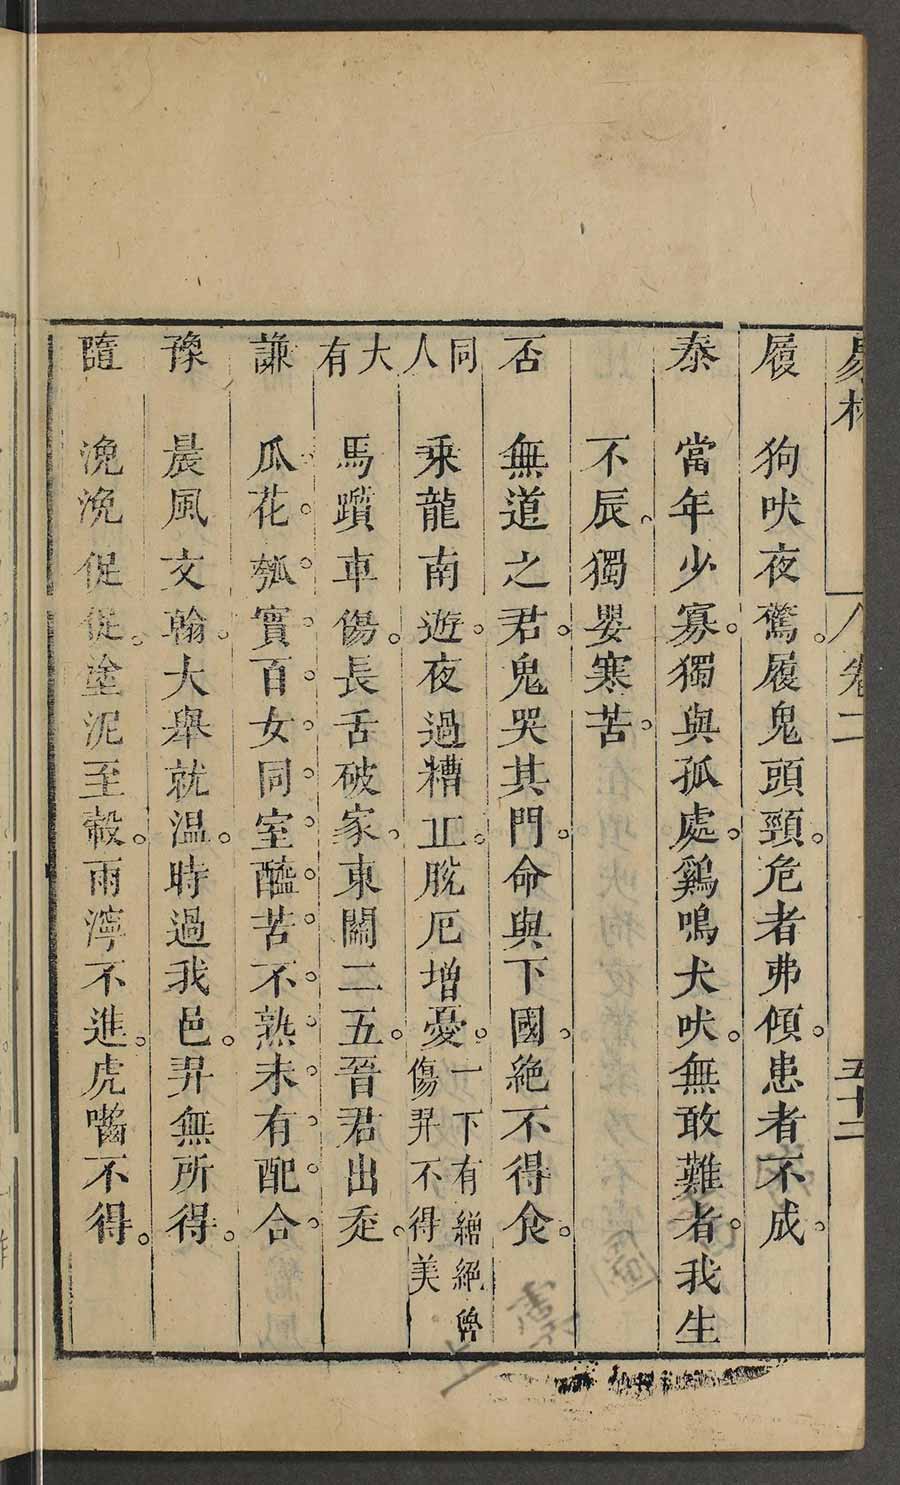 易林 卷二 五十二
履 狗吠夜驚。履鬼頭頸。危者弗傾。患者不成。
泰 當年少寡。獨與孤處。鷄鳴犬吠。無敢難者。我生
不辰。獨嬰寒苦。
否 無道之君。鬼哭其門。命與下國。絕不得食。
同人 乘龍南遊。夜過糟丘。脫厄增憂。一下有繒絕
傷羿不得美
大有 馬躓車傷。長舌破家。東關二五。晉君出走。
謙 瓜花瓠實。百女同室。醯苦不熟。未有配合。
豫 晨風文翰。大舉就温。時過我邑。羿無所得。
隨 浼浼促促。塗泥至轂。雨濘不進。虎嚙不得。